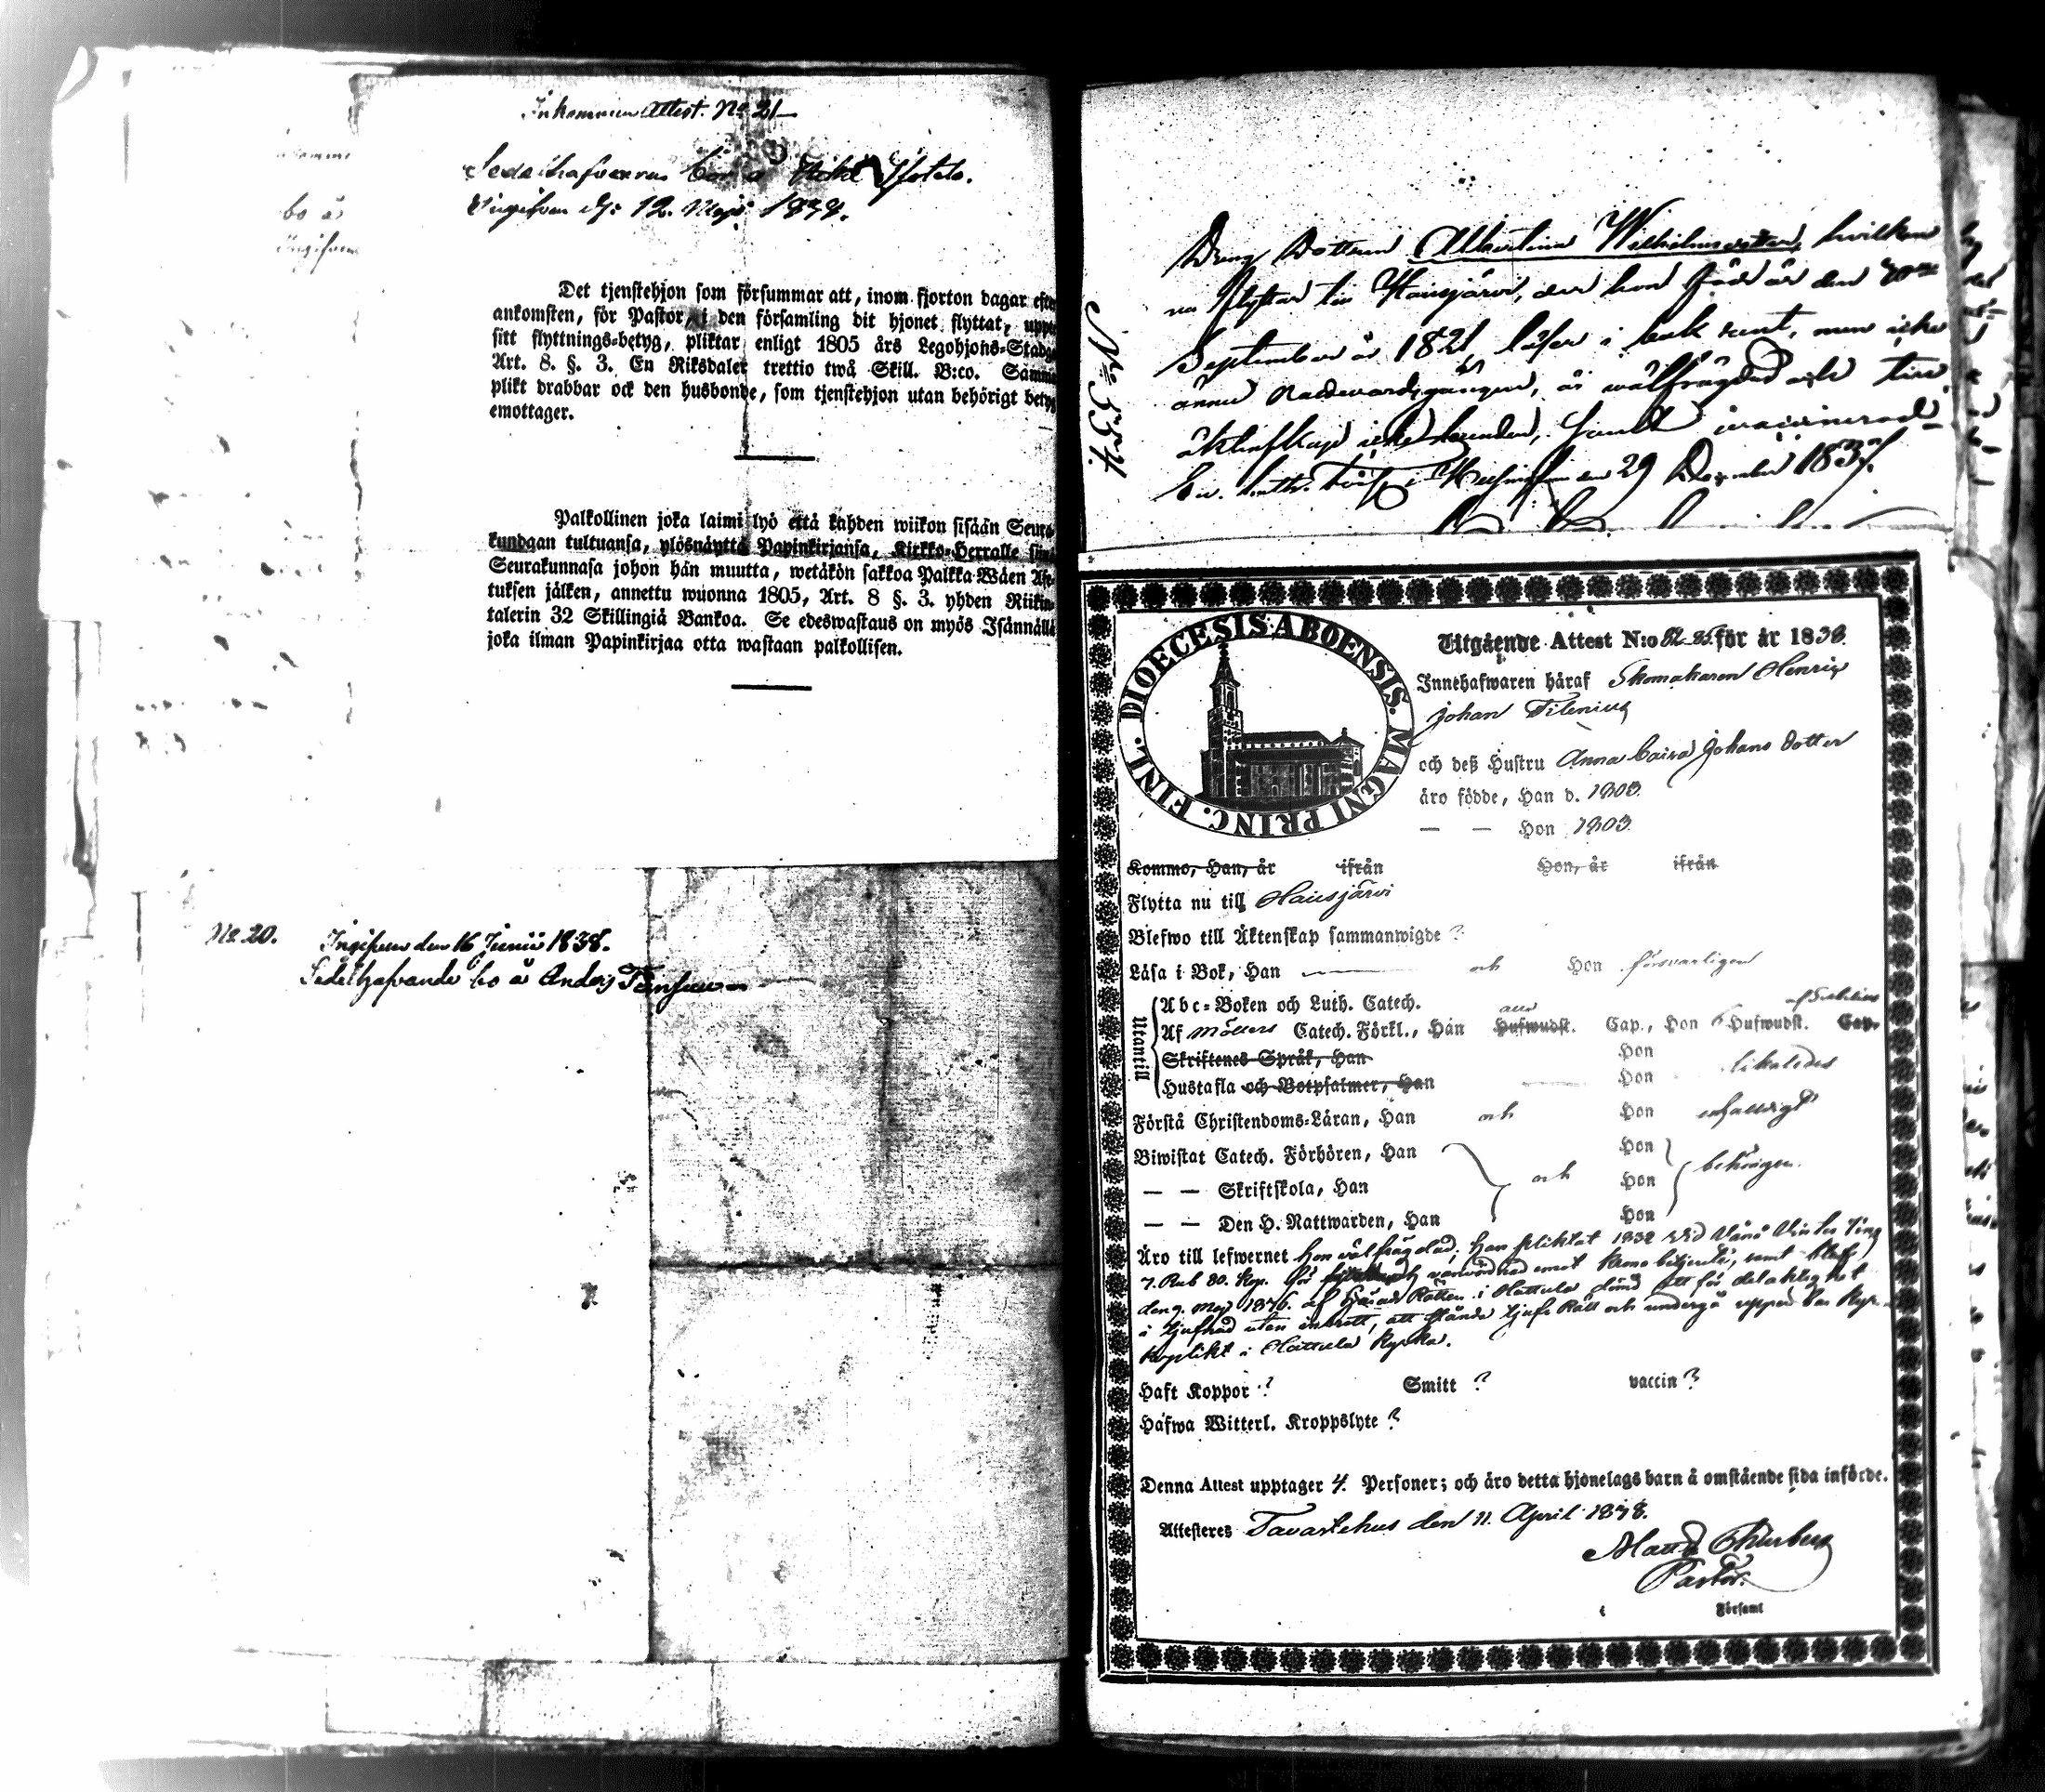 Inkommen Attest. No 21
Sedelhafvarens bor å
Ingifven d: 12. Maji 1838.
Det tjenstehjon som försummar att, inom fjorton dagar efte
ankomsten, för Pastor, i den församling dit hjonet flyttat, uppt
sitt flyttnings-betyg, pliktar enligt 1805 års Legohjons-Stadga
Art. 8. §. 3. En Riksdaler trettio twå Skill. B:co. Samma
plikt drabbar ock den husbonde, som tjenstehjon utan behörigt betyg
emottager.
Palkollinen joka laimi lyö että kahden wiikon sisään Seura-
kundaan tultuansa, ylösnäyttä Papinkirjansa, Kirkko-Herralle siinä
Seurakunnasa johon hän muutta, wetäkön sakkoa Palkka-Wäen Ase-
tuksen jälken, annettu wuonna 1805, Art. 8 §. 3. yhden Riikin-
talerin 32 Skillingiä Bankoa. Se edeswastaus on myös Isännällä
joka ilman Papinkirjaa otta wastaan palkollisen.
No. 20.
Ingifven den 16 Junii 1838.
Sedelhafvande bo å Anders
bo å
Ingifven
No 554.
Dottern Albertina Wilhelmsdotter, hvilken
nu flyttar till Hausjärvi, der hon född är den
September år 1821, läser i bok rent, men icke
ännu Nattvardsgången, är wälfrägdad och till
äktenskap icke bunden, samt vaccinerad.
i Helsingfors den 29 December 1837.
DIOECESIS ABOENSIS. MAGNI PRINC. FINL.
Utgående Attest N:o 82-85 för år 1838.
Innehafwaren häraf Skomakaren Henric
Johan Filenius
och deß Hustru Anna Caisa Johans dotter
äro födde, Han d. 1803.
— — Hon 1803.
Kommo, Han, år ifrån Hon, år ifrån
Flytta nu till Hausjärvi
Blefwo till Äktenskap sammanwigde ?
Läsa i Bok, Han och Hon försvarligen
Utantill
Abc-Boken och Luth. Catech.
Af Möllers Catech. Förkl., Han alla Hufwudst. Cap., Hon 6 Hufwudst. Cap. af Sebelius
Skriftenes Språk, Han Hon
Hustafla och Botpsalmer, Han Hon likaledes
Förstå Christendoms-Läran, Han och Hon enfaldigt
Biwistat Catech. Förhören, Han Hon
— — Skriftskola, Han och Hon behörigen.
— — Den H. Nattwarden, Han Hon
Äro till lefwernet Hon välfrägdad; Han pliktat 1832 vid Vånå Vinter Ting
7. Rub 80. Kop. för vanvördnad emot Krono betjente, samt blef
den 9. Maj af Härads Rätten i Hattula dömd att för delaktighet
i tjufnad utan inbrott, att stånda tjufs Rätt och undergå uppenbar Kyr-
koplikt i Hattula Kyrka.
Haft Koppor ? Smitt ? vaccin ?
Hafwa Witterl. Kroppslyte ?
Denna Attest upptager 4. Personer; och äro detta hjonelags barn å omstående sida införde.
Attesteres Tavastehus den 11. April 1838.
Pastor.
Församl